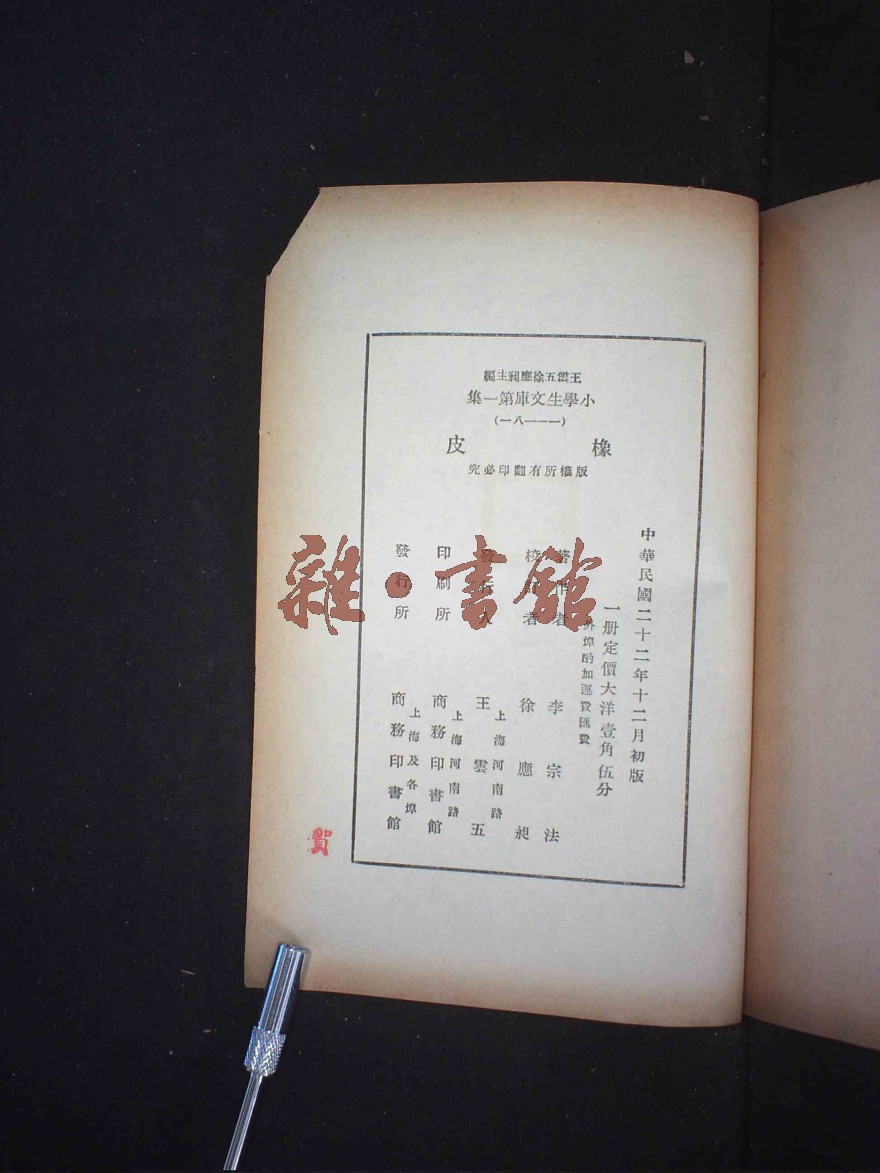 王雲五徐應昶主編
小學生文庫第一集
橡皮
版權所有翻印必究
中華民國二十二年十二月初版
一册定價大洋壹角伍分
外埠酌加運費匯費
著作者 李宗法
校訂者 徐應昶
發行人 上海河南路 王雲五
印刷所 上海河南路 商務印書館
發行所 上海及各埠 商務印書館
雜·書館
賀